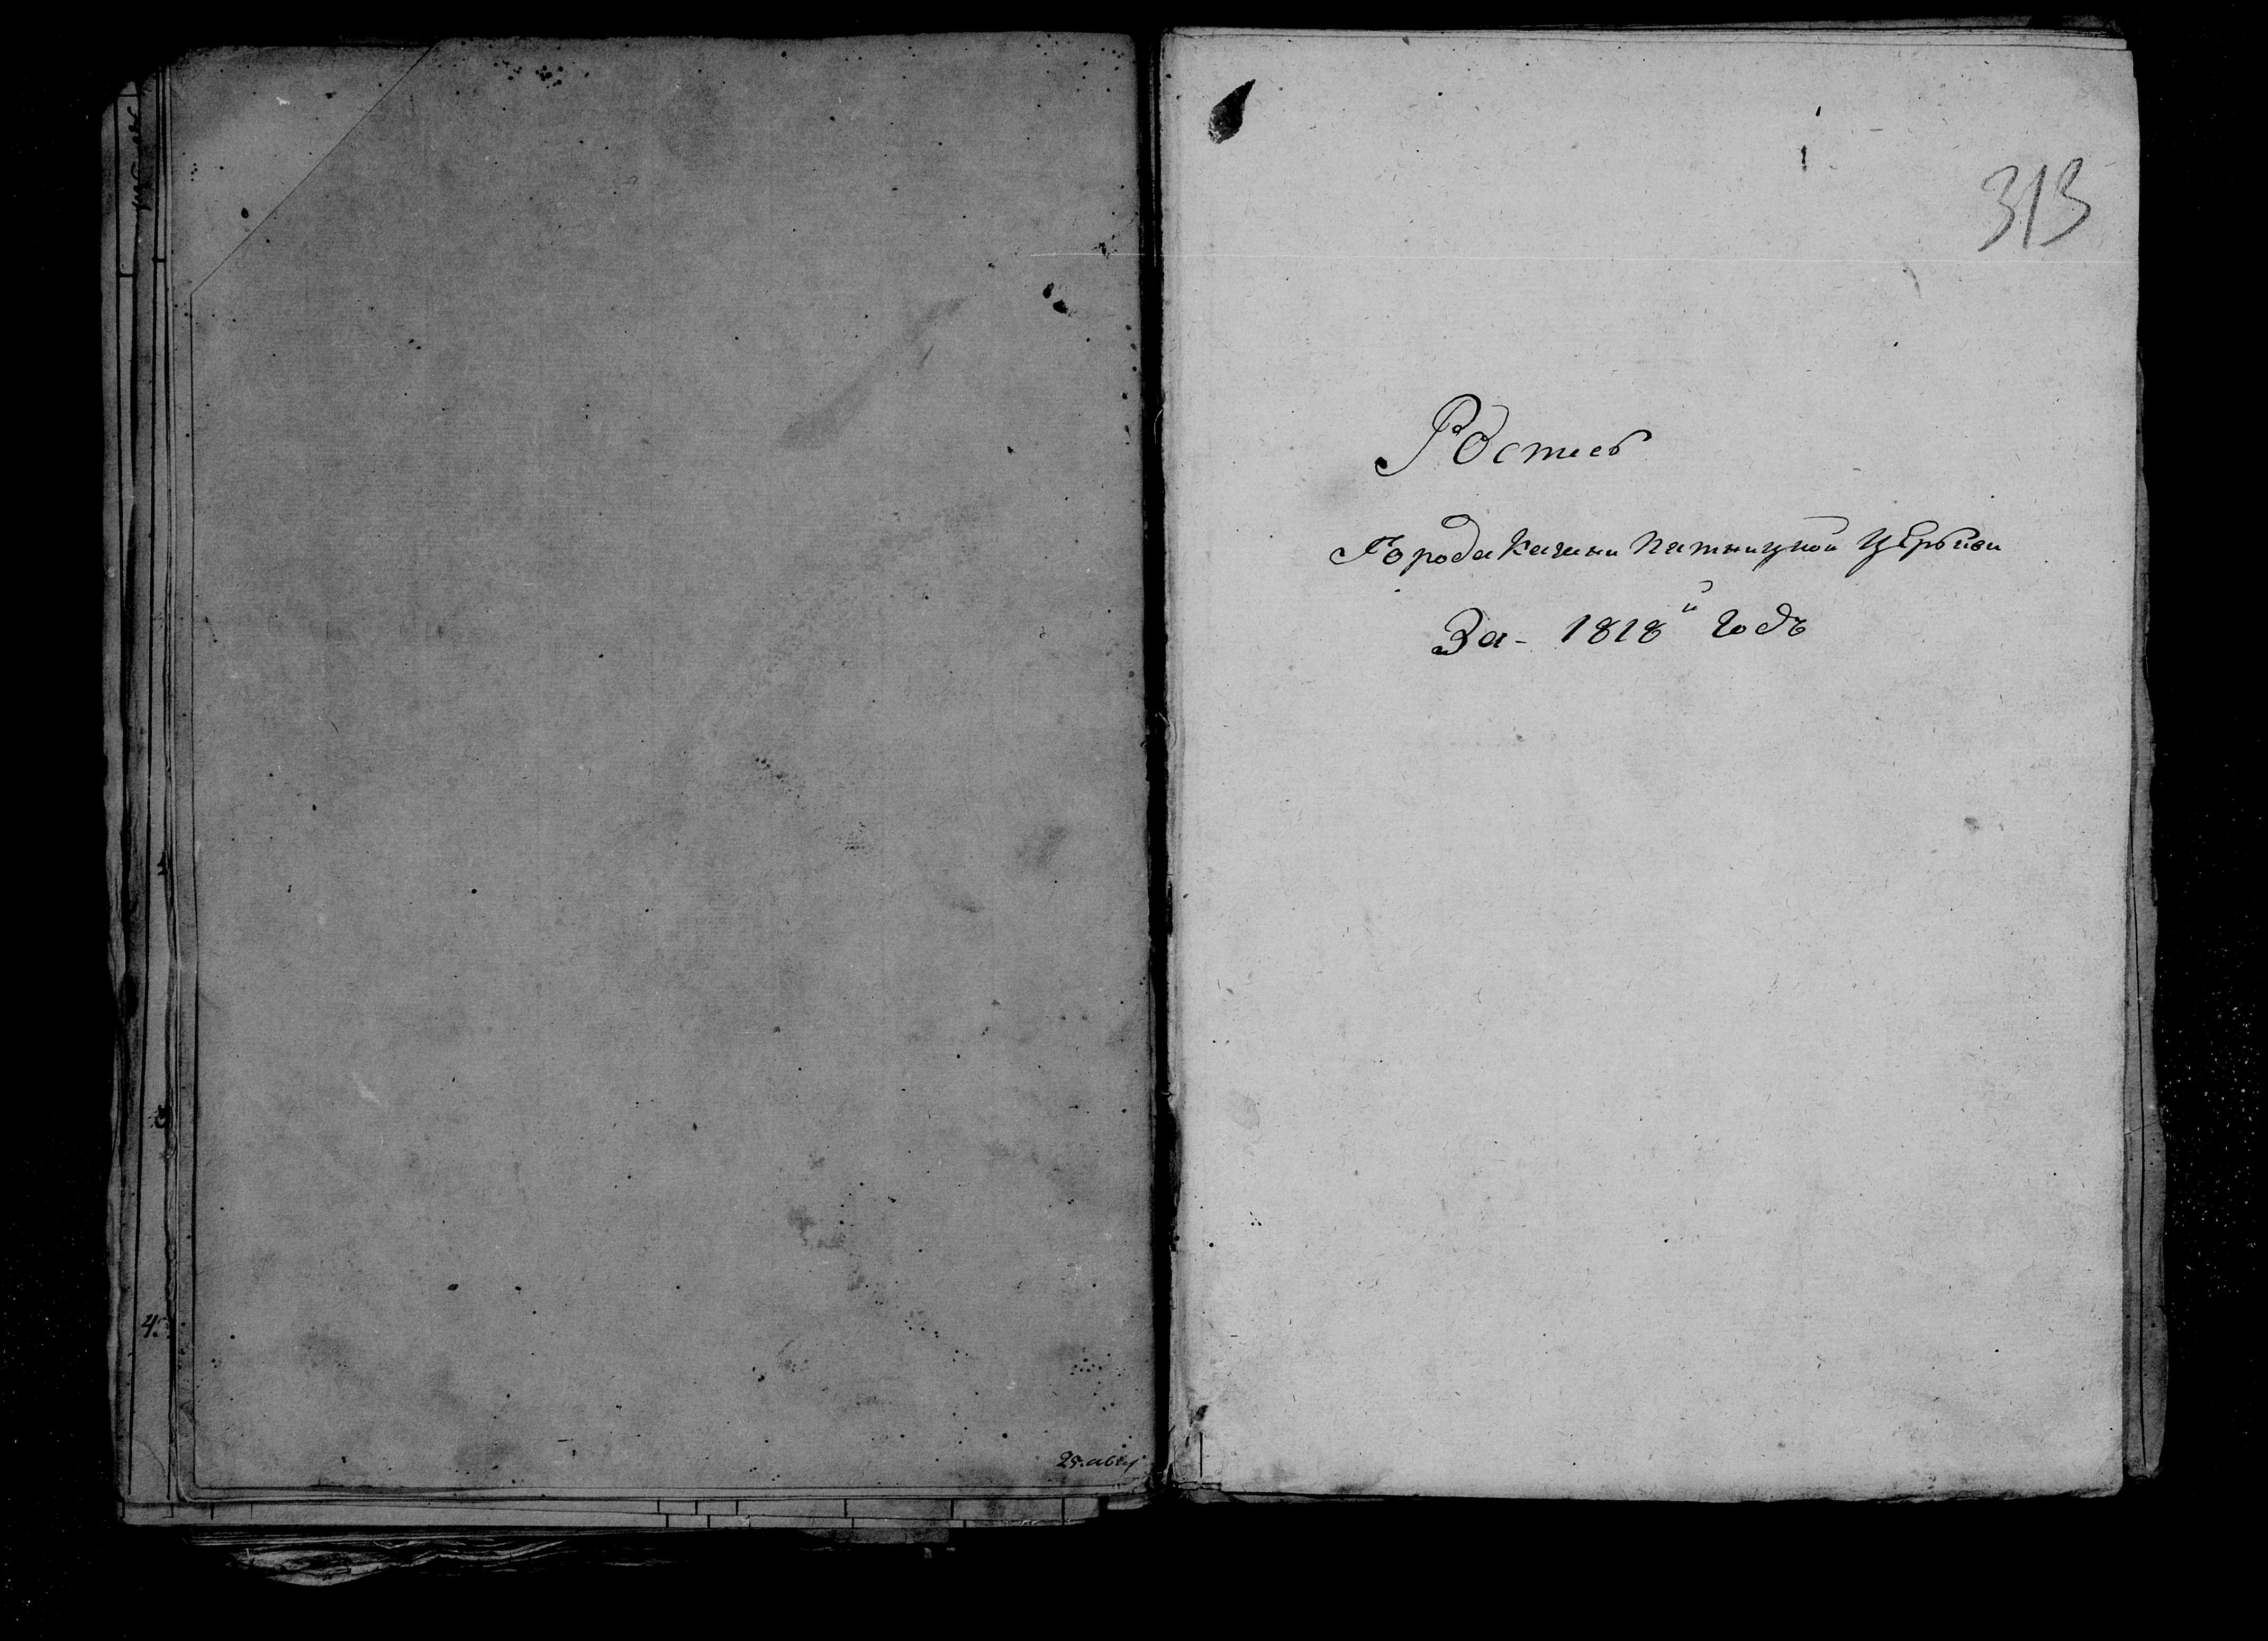 313
Роспись
Города Казани Пятницкой Церькви
За - 1818й годъ